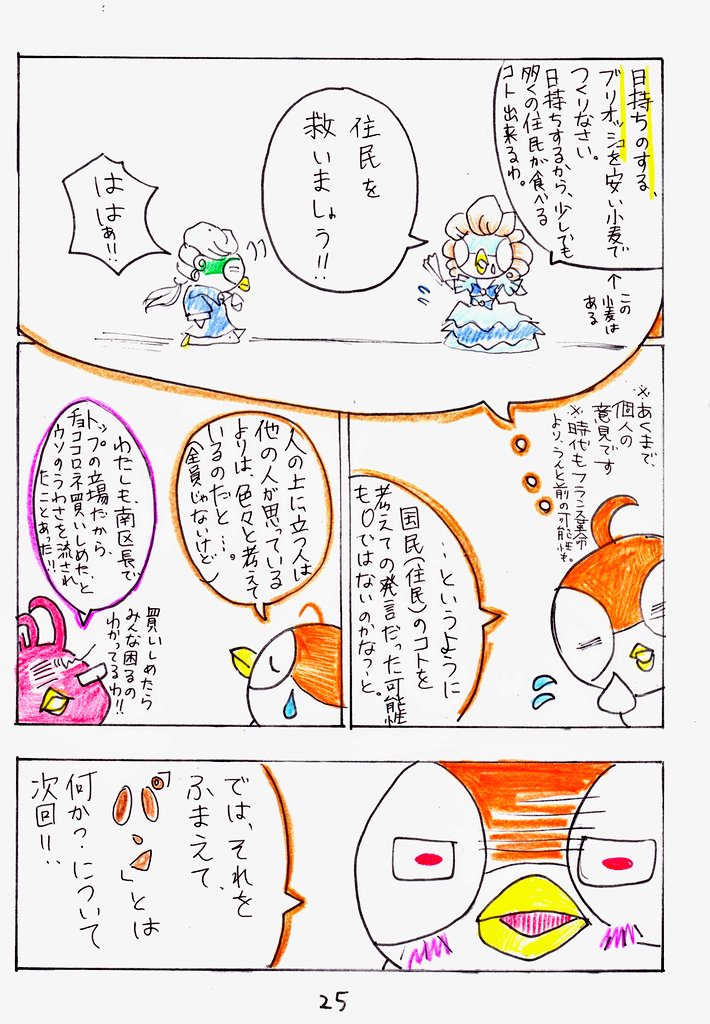 日持ちのする、
ブリオッシュを安い小麦で
つくりなさい。
日持ちするから、少しでも
多くの住民が食べる
コト出来るわ。
↑この
小麦は
ある
住民を
救いましょう!!
ははぁ!!
※あくまで、
個人の
意見です
※時代もフランス革命
より、うんと前の可能性も。
…というように
国民(住民)のコトを
考えての発言だった可能性
も0ではないのかなっと。
人の上に立つ人は
他の人が思っている
よりは、色々と考えて
いるのだと…。
(全員じゃないけど)
わたしも、南区長で
トップの立場だから
チョココロネ買いしめた、と
ウソのうわさを流され
たことあった!!
買いしめたら
みんな困るの
わかってるわ!!
では、それを
ふまえて、
「パンとは
何か?」について
次回!!
25